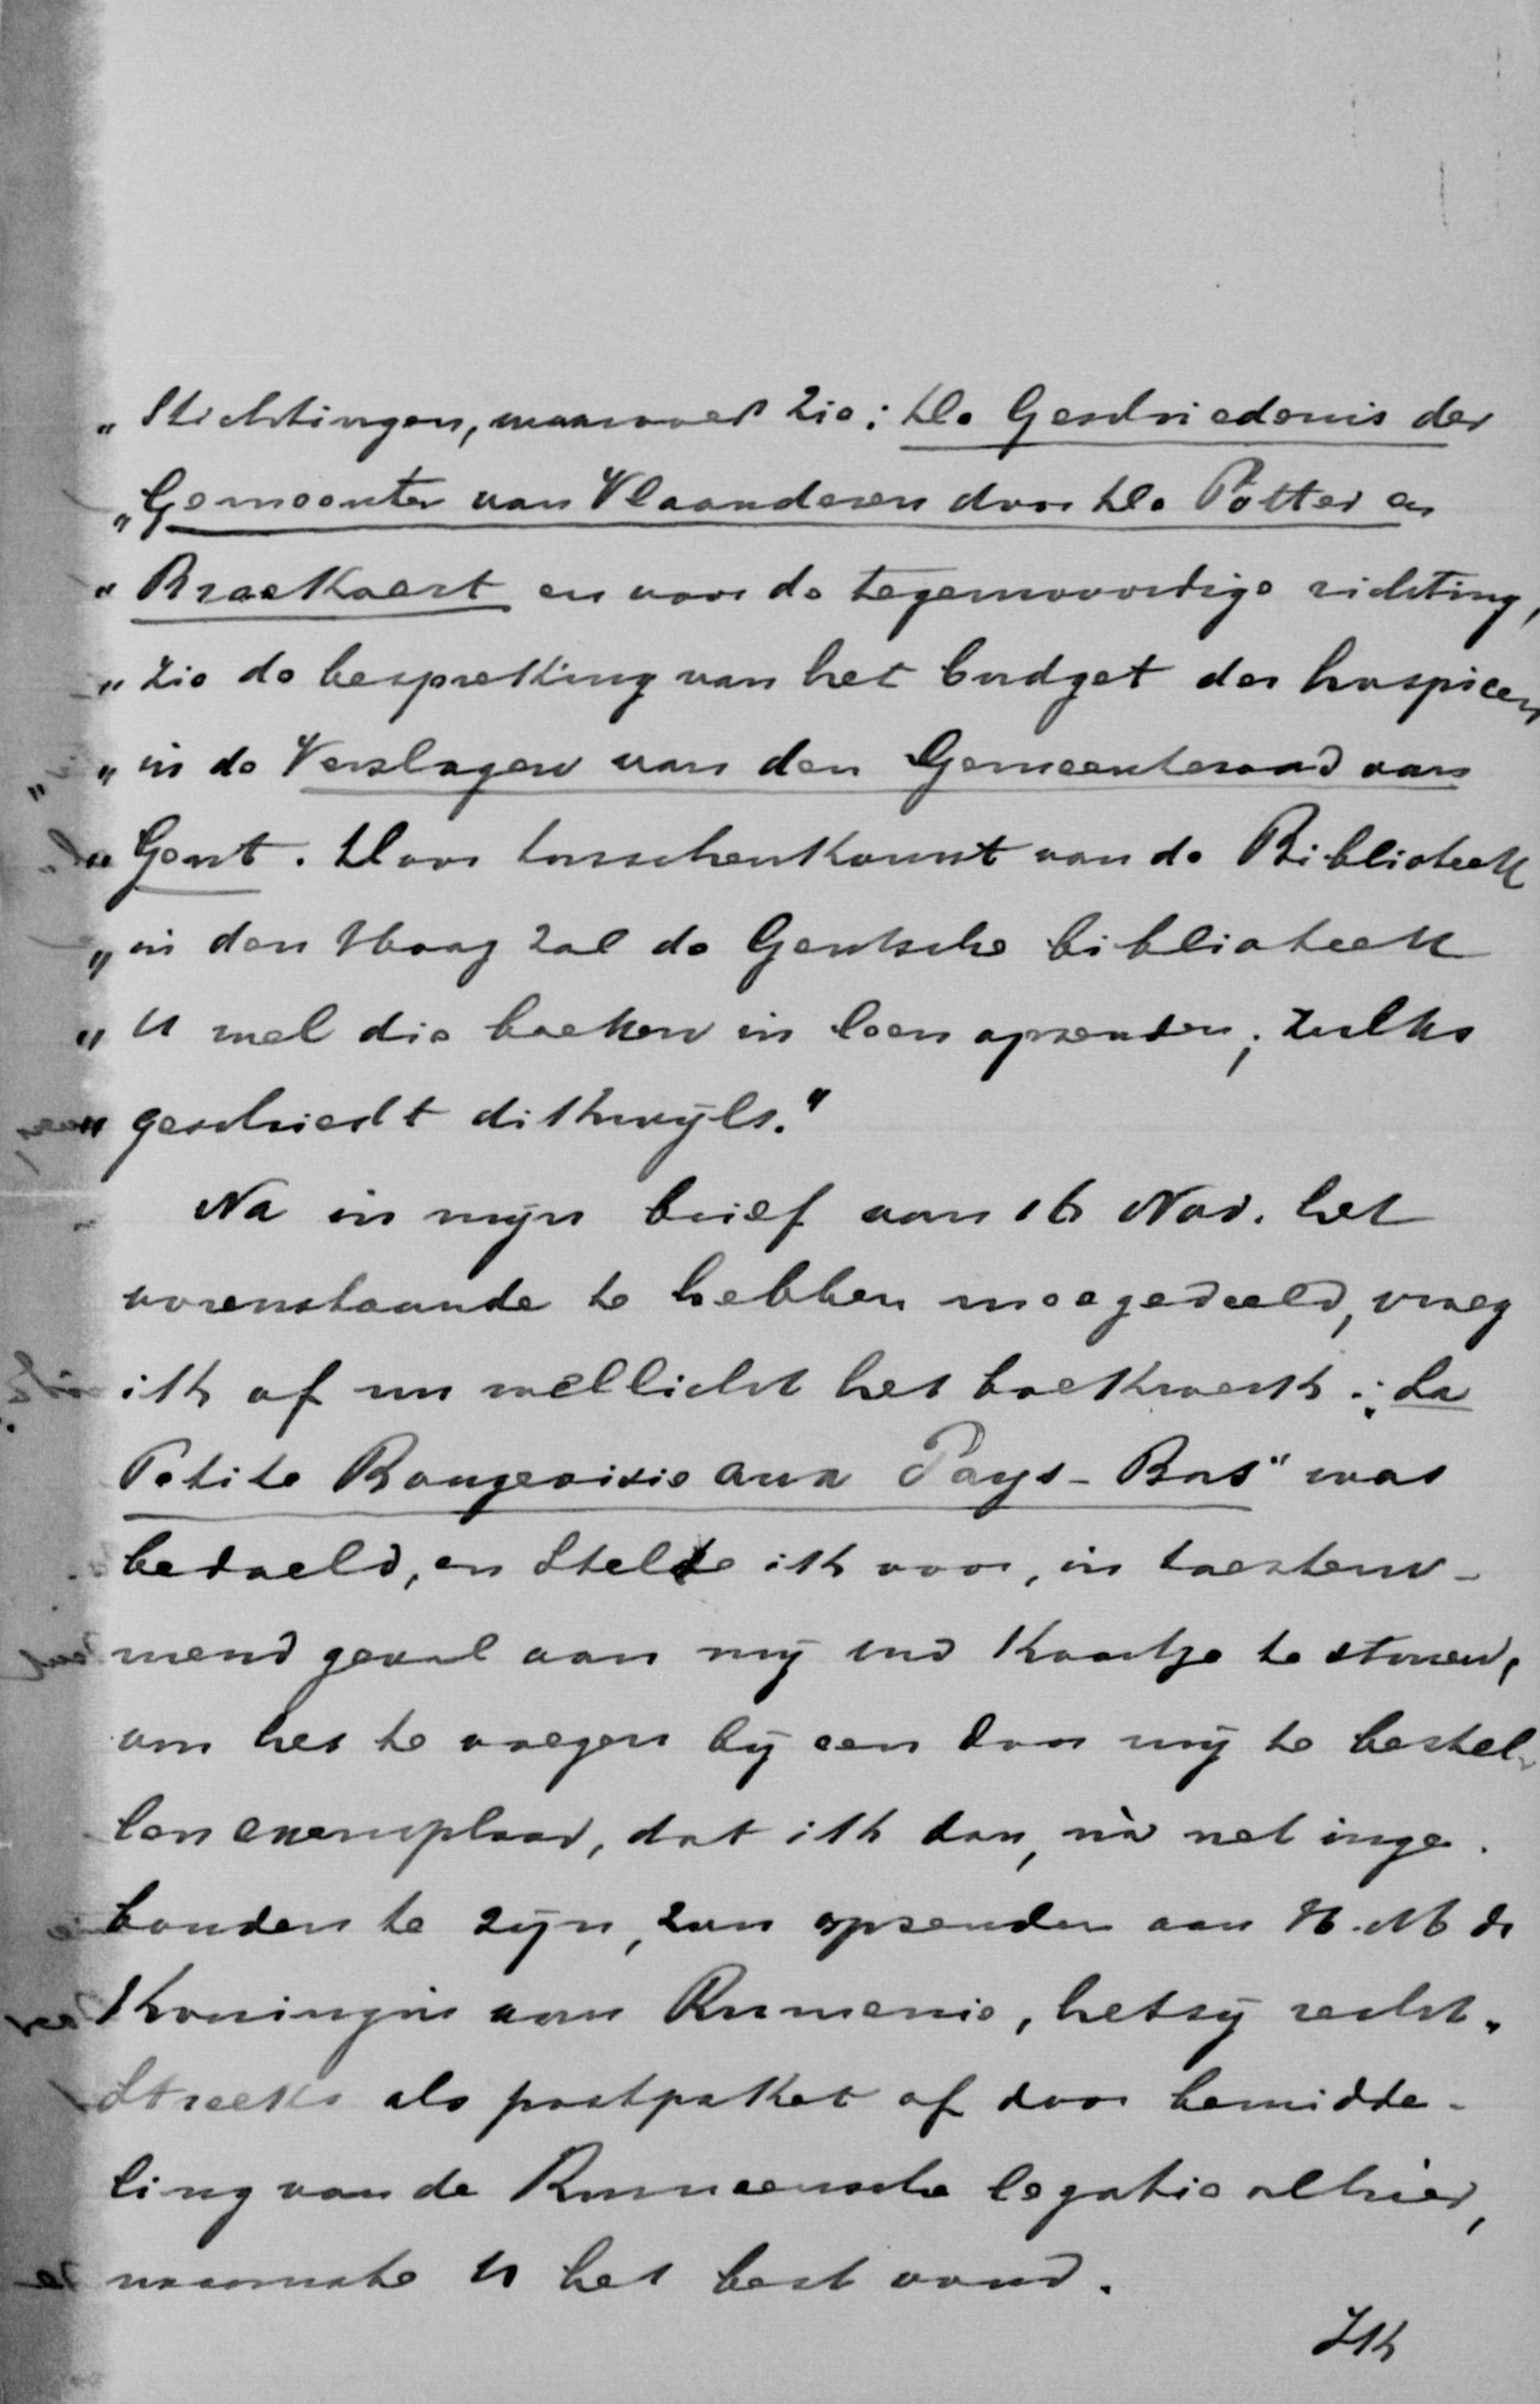 „ Stichtingen, waarover zie: De Geschiedenis der
„ Gemeenten van Vlaanderen door De Potter en
„ Braekaert en voor de tegenwoordige richting,
„ zie de bespreking van het budget der hospicen
„ in de Verslagen van den Gemeenteraad van
„ Gent. Door tusschenkomst van de Biblioteek
„ in den Haag zal de Gentsche biblioteek
„ U wel die boeken in leen opzenden; zulks
„ geschiedt dikwijls."
Na in mijn brief van 16 Nov. het
vorenstaande te hebben meegedeeld, vroeg
ik of nu wellicht het boekwerk: „La
Petite Bourgeoisie aux Pays-Bas" was
bedoeld, en stelde ik voor, in toestem-
mend geval aan mij Uw kaartje te sturen,
om het te voegen bij een door mij te bestel-
len exemplaar, dat ik dan, nà net inge-
bonden te zijn, zou opzenden aan H.M. de
Koningin van Rumenie, hetzij recht-
streeks als postpaket of door bemidde-
ling van de Rumeensche legatie alhier,
naarmate U het best vond.
Ik